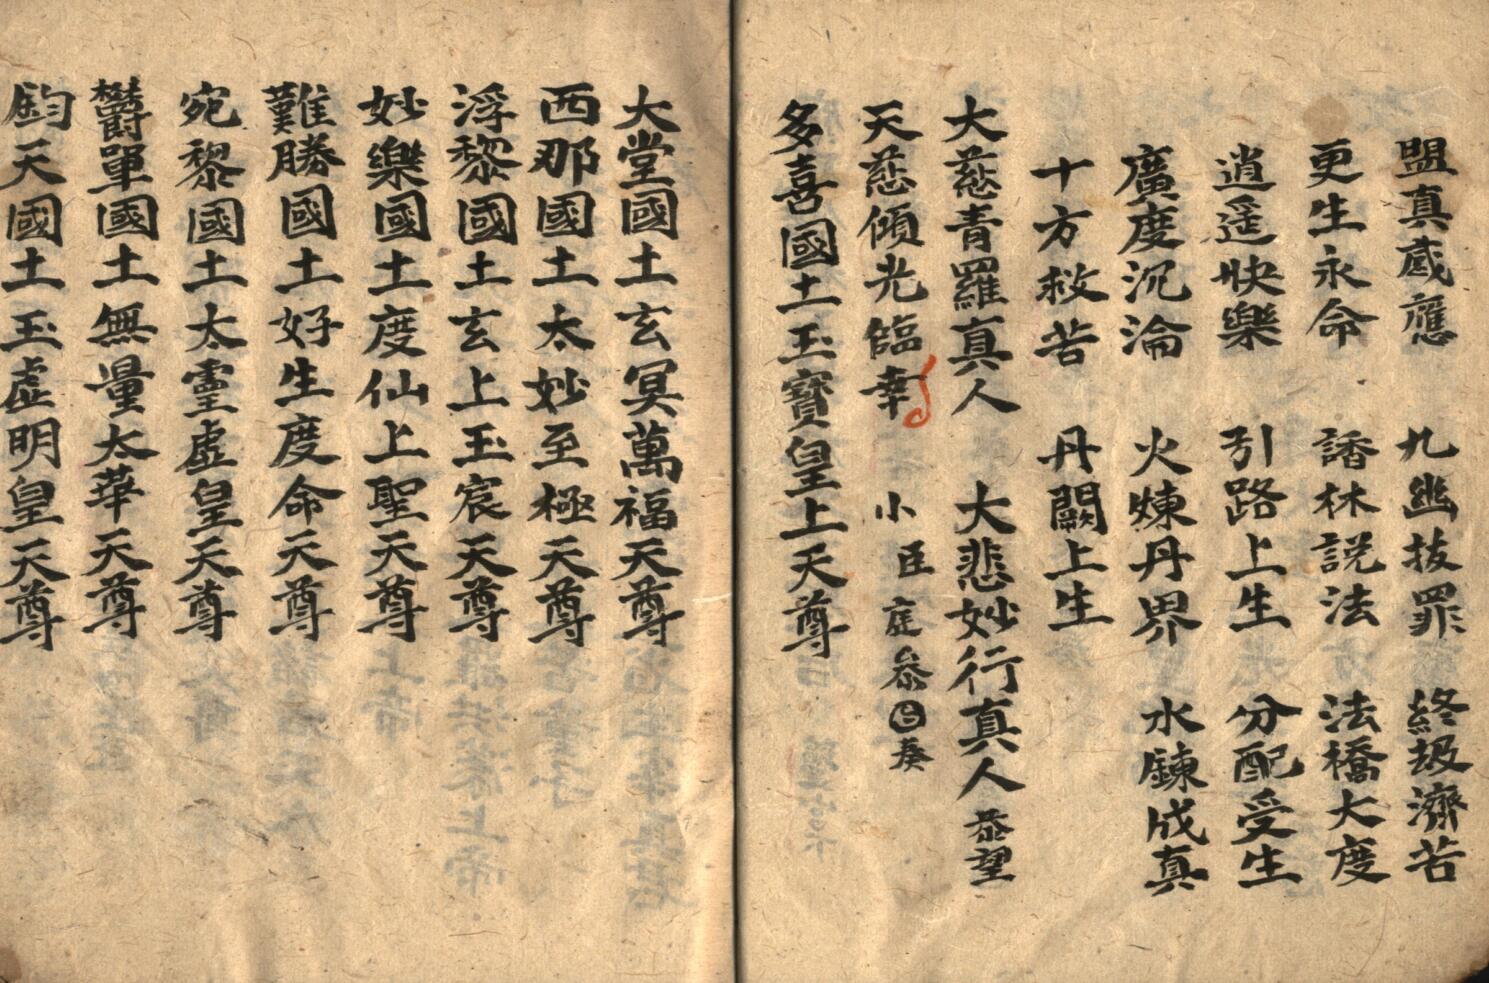 盟真感應　九幽拔罪　終劫濟苦
更生永命　誘林説法　法橋大度
逍遥快樂　引路上生　分配受生
廣度沉淪　火煉丹界　水鍊成真
十方救苦　丹闕上生
大慈青羅真人　大悲妙行真人　恭望
天慈傾光臨幸　小臣　庭叅　奏
多喜國土玉寶皇上天尊
大堂國土玄冥萬福天尊
西那國土太妙至極天尊
浮黎國土玄上玉宸天尊
妙樂國土度仙上聖天尊
難勝國土好生度命天尊
宛黎國土太靈虛皇天尊
鬱單國土無量太華天尊
鈞天國土玉虛明皇天尊